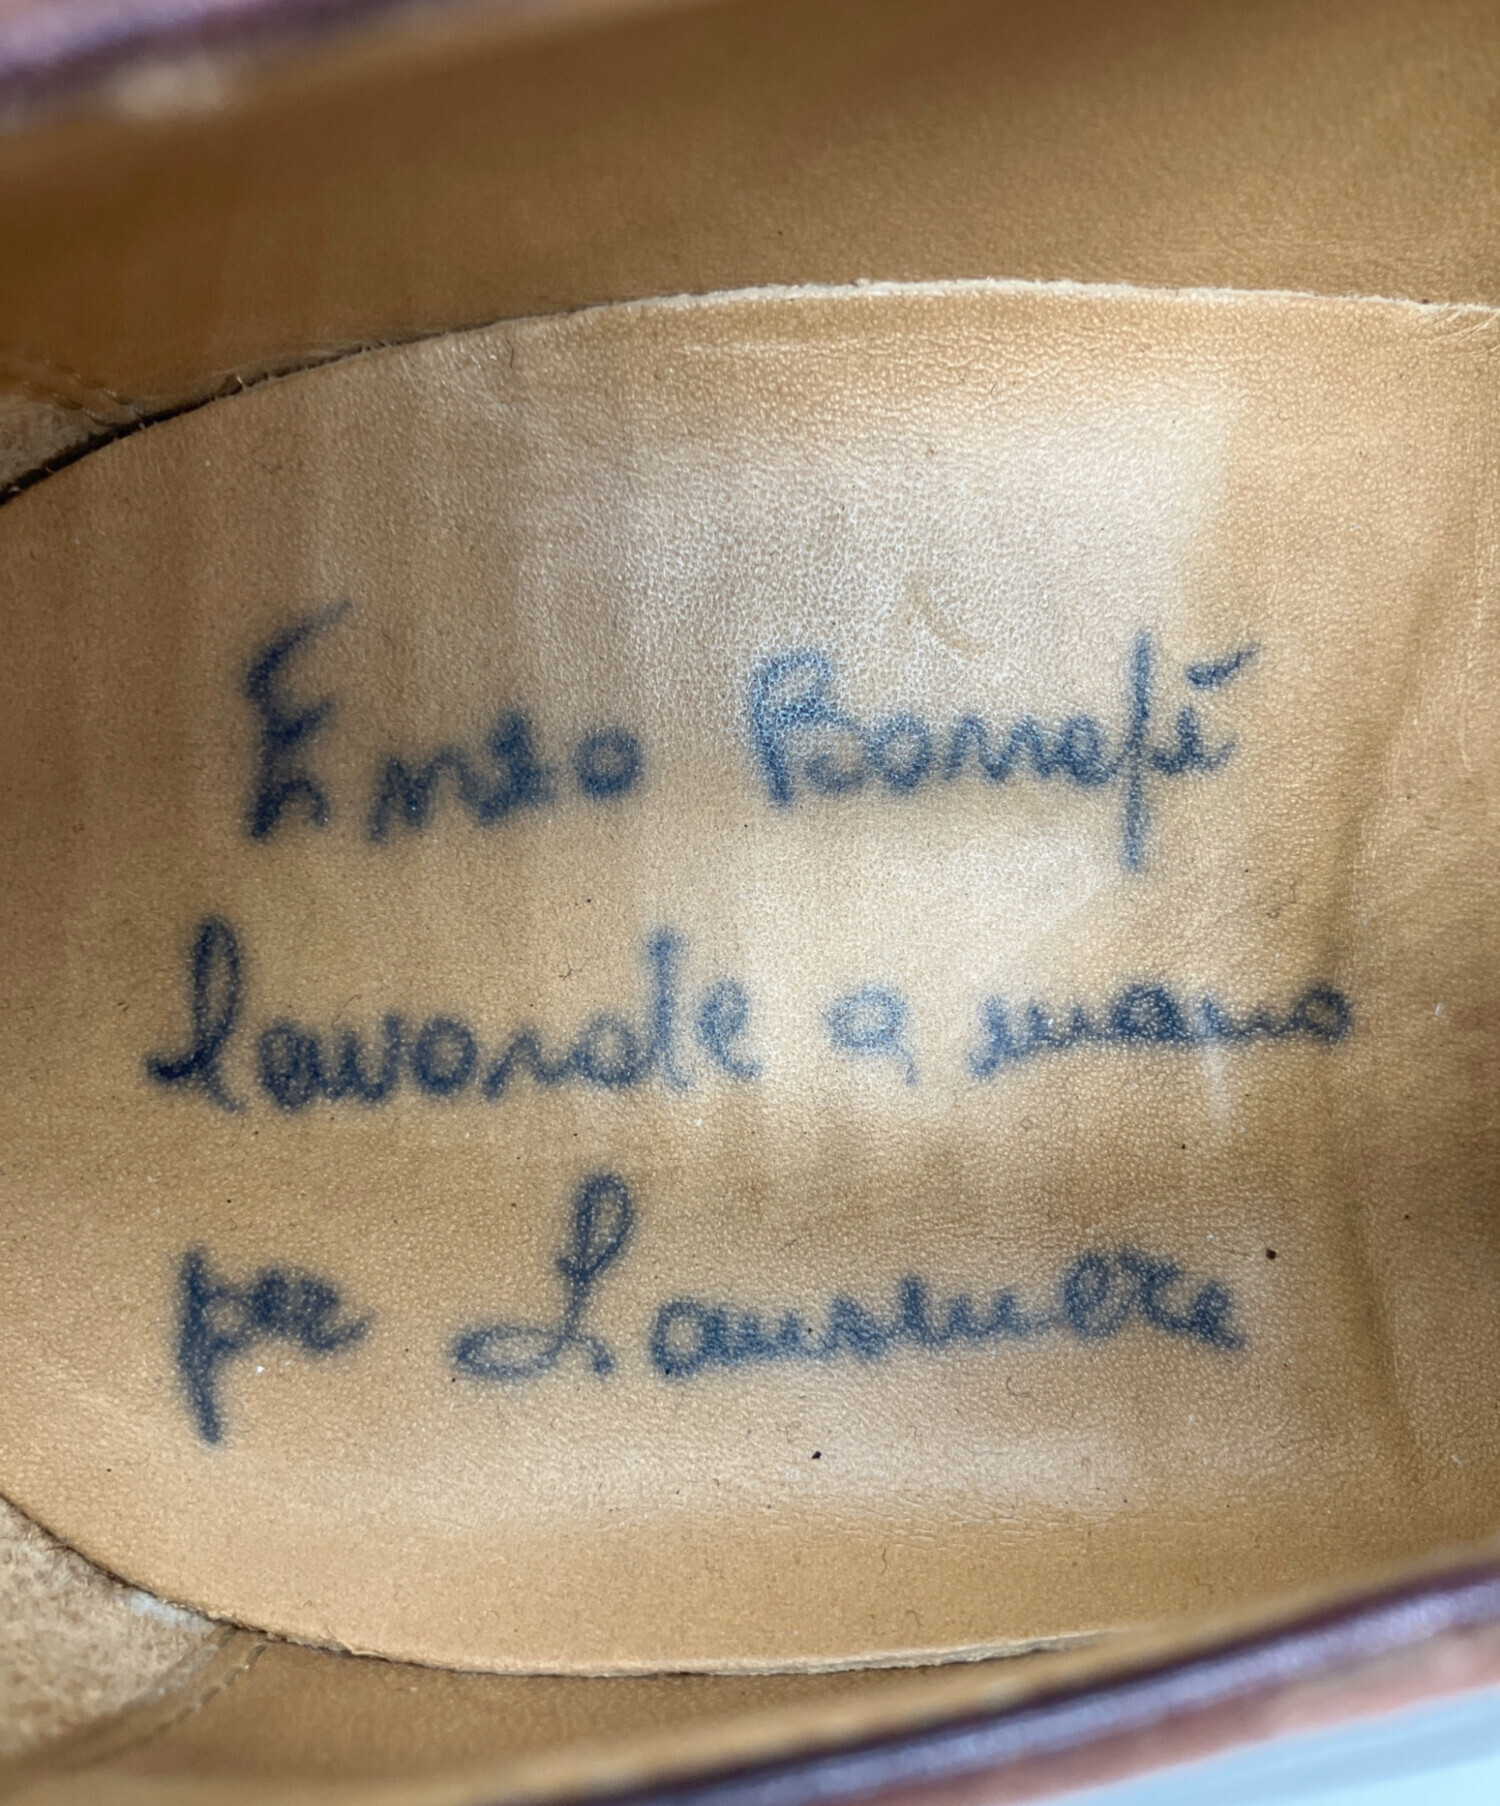 Enzo Bonafè
lavorate a mano
per